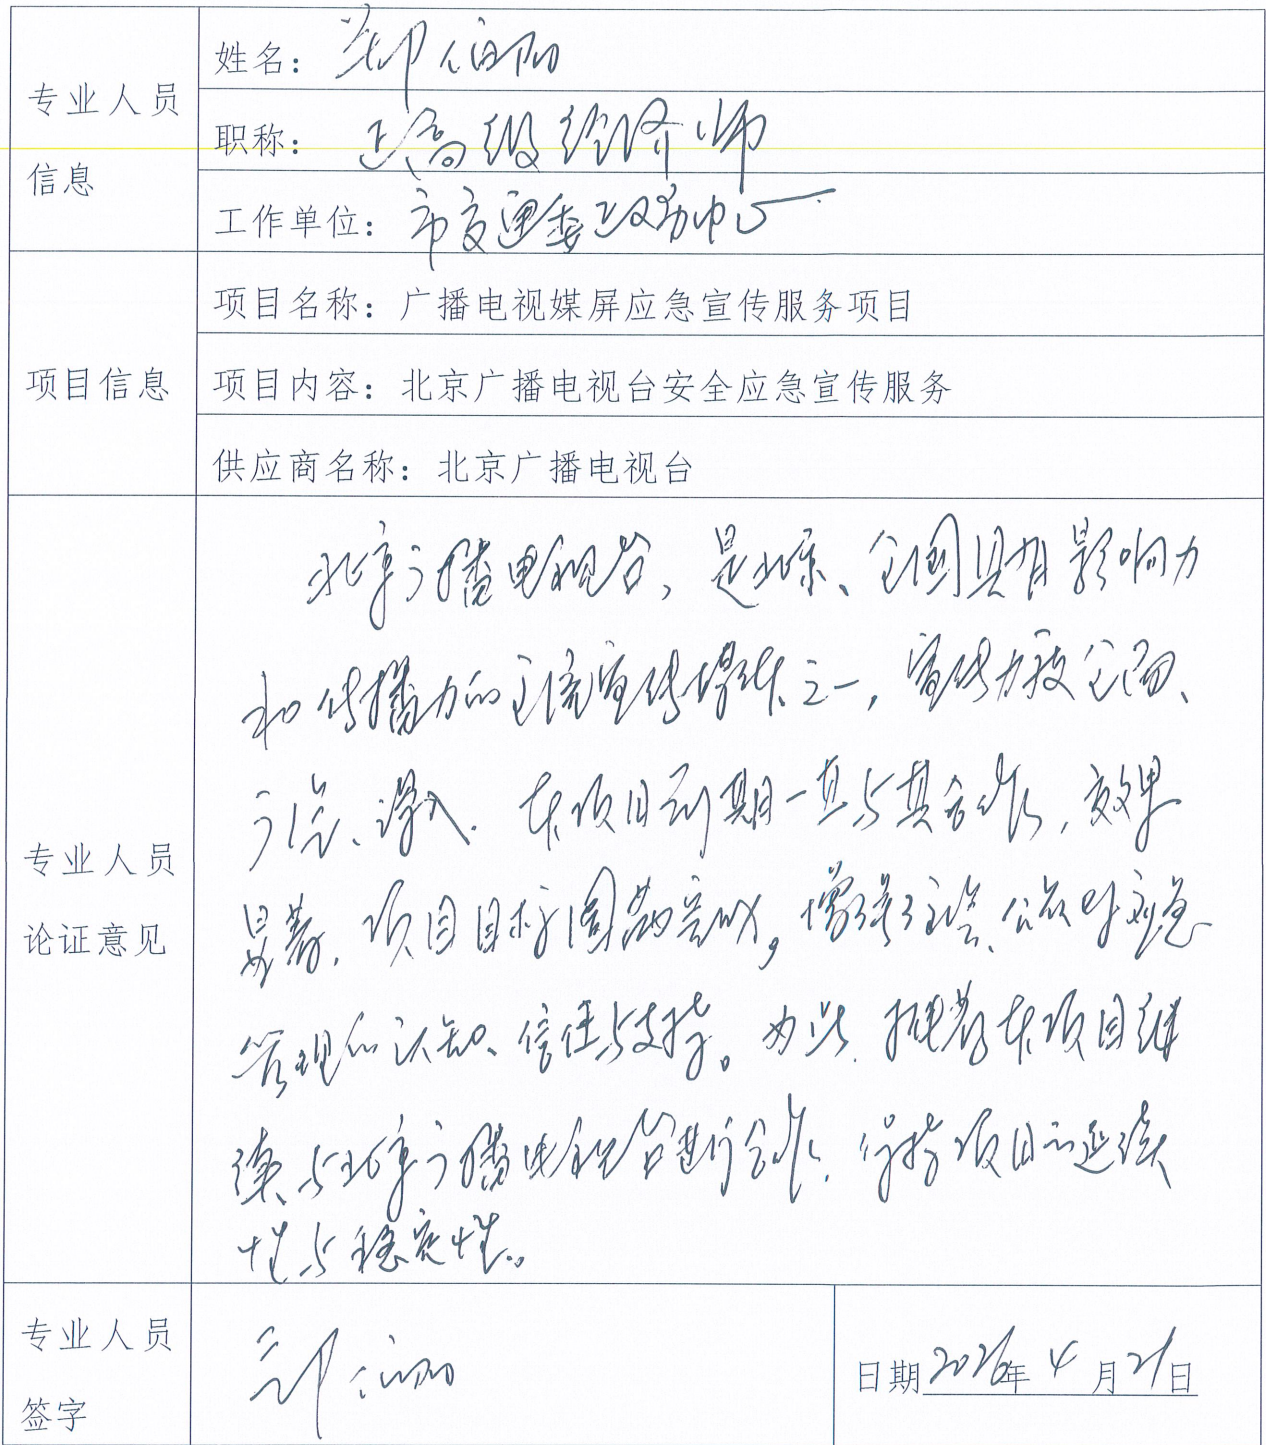 专业人员信息
姓名：郑伯阳
职称：正高级经济师
工作单位：市交通委政务中心
项目信息
项目名称：广播电视媒屏应急宣传服务项目
项目内容：北京广播电视台安全应急宣传服务
供应商名称：北京广播电视台
专业人员论证意见
北京广播电视台，是北京、全国具有影响力
和传播力的主流宣传媒体之一，宣传力度全面、
广泛、深入。本项目到期一直与其合作，效果
显著，项目目标圆满完成，增强了社会、公众对应急
管理的认知、信任与支持。为此，推荐本项目继
续与北京广播电视台进行合作，保持项目的延续
性与稳定性。
专业人员签字
郑伯阳
日期2026年4月21日